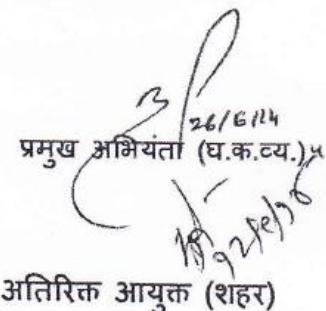 26/6/14
प्रमुख अभियंता (घ.क.व्य.)
अतिरिक्त आयुक्त (शहर)